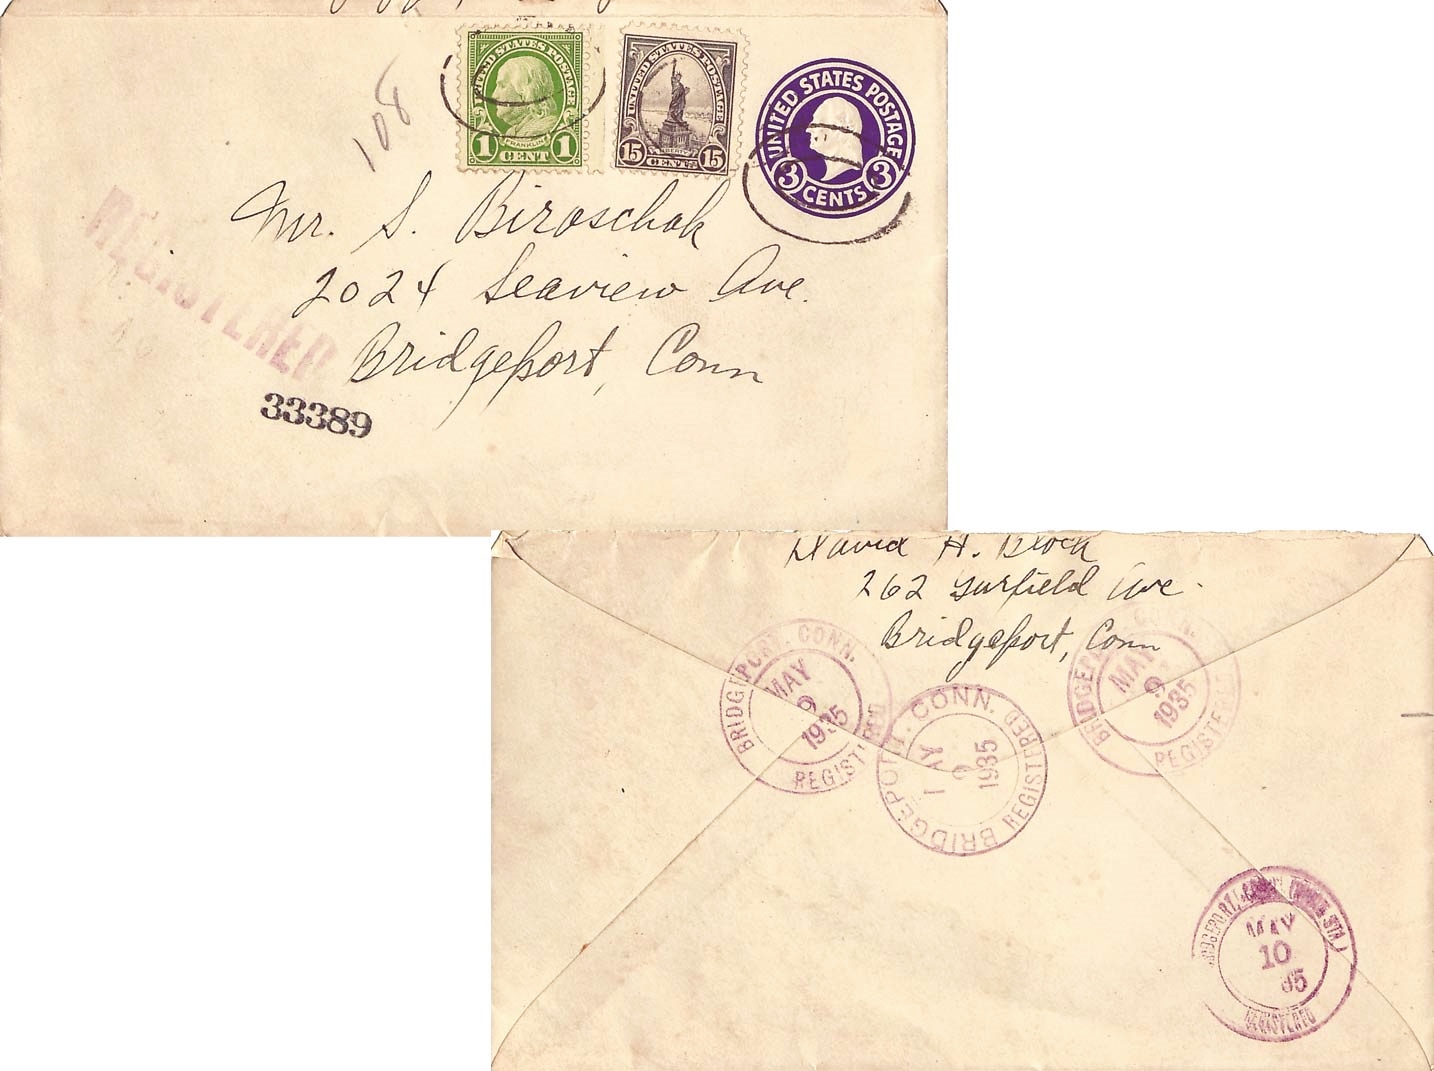 108
UNITED STATES POSTAGE
FRANKLIN
1 CENT 1
UNITED STATES POSTAGE
LIBERTY
15 CENTS 15
UNITED STATES POSTAGE
3 CENTS 3
Mr. S. Biroschak
2024 Seaview Ave.
Bridgeport, Conn
REGISTERED
33389
David H. Block
262 Garfield Ave.
Bridgeport, Conn
BRIDGEPORT, CONN.
MAY
9
1935
REGISTERED
BRIDGEPORT, CONN.
MAY
9
1935
REGISTERED
BRIDGEPORT, CONN.
MAY
9
1935
REGISTERED
BRIDGEPORT, CONN. STA.)
MAY
10
35
REGISTERED